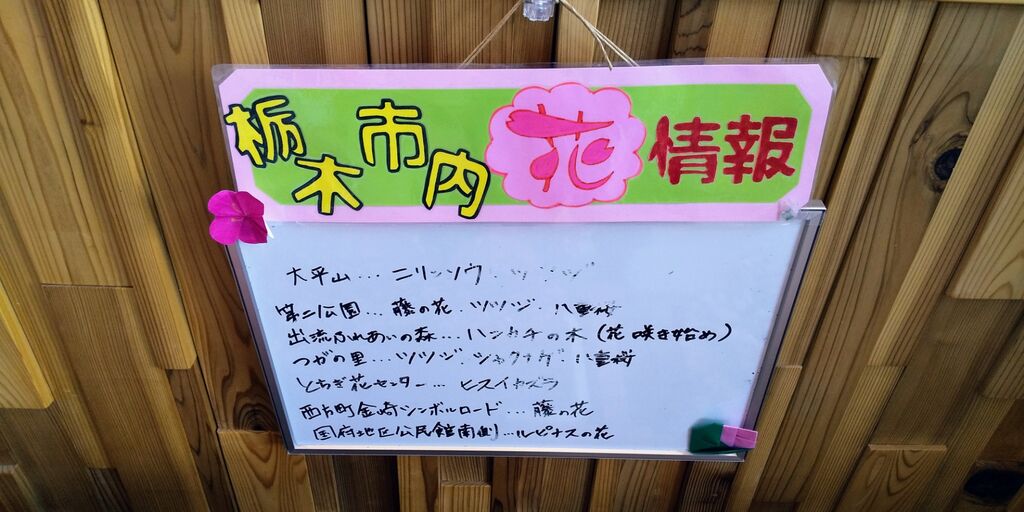 栃木市内花情報
大平山…ニリンソウ
第二公園…藤の花・ツツジ・八重桜
出流ふれあいの森…ハンカチの木(花咲き始め)
つがの里…ツツジ・シャクナゲ・八重桜
とちぎ花センター…ヒスイカズラ
西方町金崎シンボルロード…藤の花
国府地区公民館南側…ルピナスの花